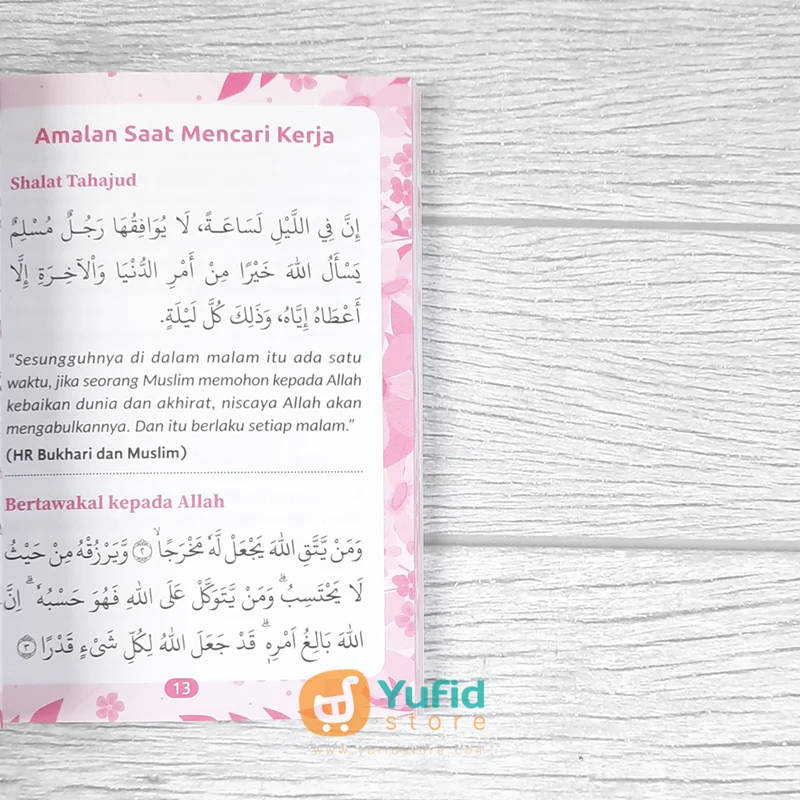 Amalan Saat Mencari Kerja
Shalat Tahajud
إِنَّ فِي اللَّيْلِ لَسَاعَـةً، لَا يُوَافِقُهَا رَجُـلٌ مُسْلِمٌ
يَسْأَلُ اللهَ خَيْرًا مِنْ أَمْرِ الدُّنْيَا وَالْآخِـرَةِ إِلَّا
أَعْطَاهُ إِيَّاهُ، وَذَلِكَ كُلَّ لَيْلَةٍ.
"Sesungguhnya di dalam malam itu ada satu
waktu, jika seorang Muslim memohon kepada Allah
kebaikan dunia dan akhirat, niscaya Allah akan
mengabulkannya. Dan itu berlaku setiap malam."
(HR Bukhari dan Muslim)
Bertawakal kepada Allah
وَمَنْ يَّتَّقِ اللهَ يَجْعَلْ لَّهٗ مَخْرَجًاۙ ۝٢ وَّيَرْزُقْهُ مِنْ حَيْثُ
لَا يَحْتَسِبُۗ وَمَنْ يَّتَوَكَّلْ عَلَى اللهِ فَهُوَ حَسْبُهٗۗ اِنَّ
اللهَ بَالِغُ اَمْرِهٖۗ قَدْ جَعَلَ اللهُ لِكُلِّ شَيْءٍ قَدْرًا ۝٣
13
Yufid
store
www.yufidstore.com